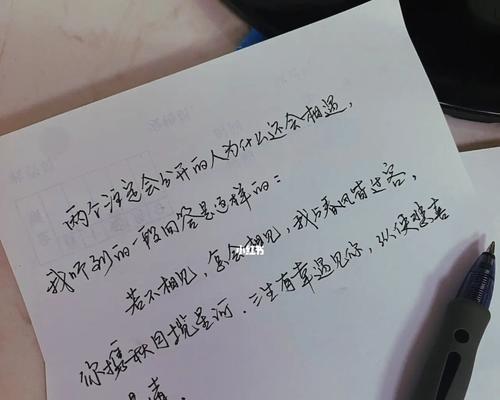 两个注定会分开的人为什么还会相遇,
我听到的一段回答是这样的:
若不相见,怎会相见,我与春风皆过客,
你携秋月揽星河.三生有幸遇见你,纵使悲喜
是情.
小红书